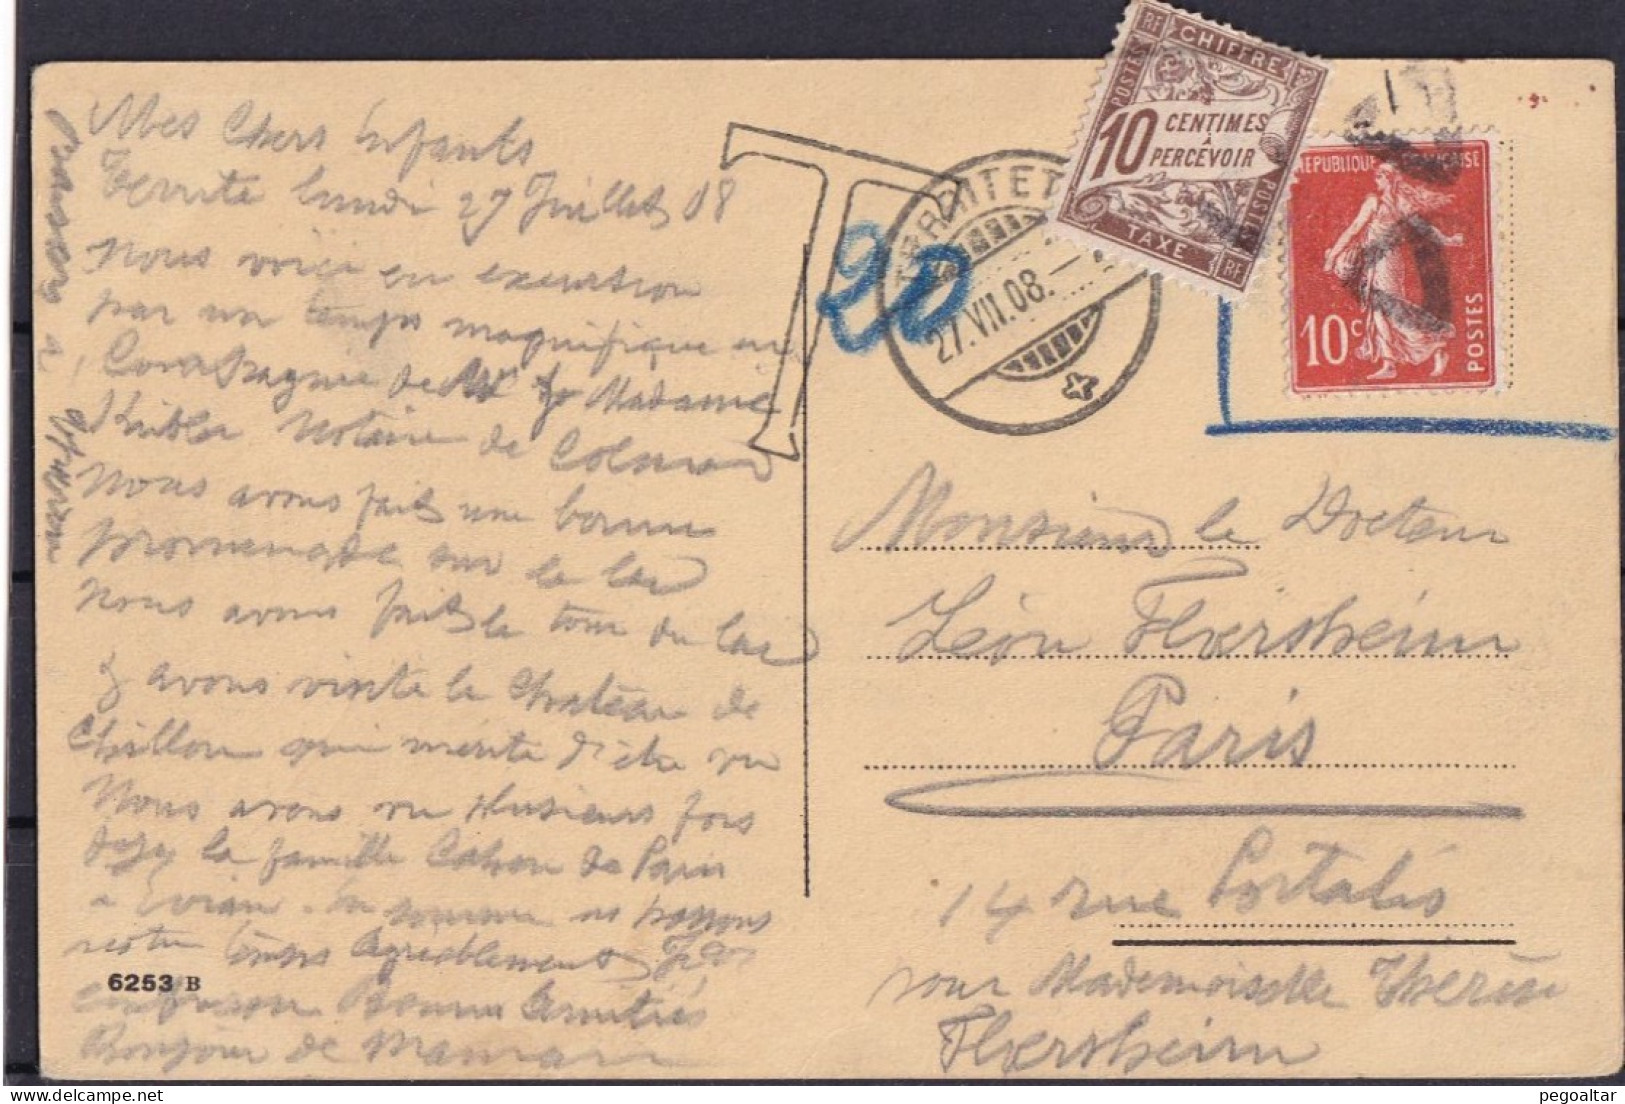 Mes Chers Enfants
Territe lundi 27 Juillet 08
nous voici en excursion
par un temps magnifique en
Compagnie de Mr & Madame
Kubler Notaire de Colmar
Nous avons fait une bonne
promenade sur le lac
nous avons fait le tour du lac
& avons visite le Chateau de
Chillon qui mérite d'etre vu
Nous avons vu plusieurs fois
la famille Cahen de Paris
a Evian. En somme ns passons
notre temps Agréablement
Bonnes Amitiés
Bonjour de Maman
6253 B
T
20
TERRITET
27.VII.08.
RF CHIFFRE
POSTES
10 CENTIMES
À
PERCEVOIR
POSTES
TAXE RF
REPUBLIQUE FRANÇAISE
10c POSTES
Monsieur le Docteur
Léon Flersheim
Paris
14 rue Portalis
pour Mademoiselle Therese
Flersheim
pegoaltar